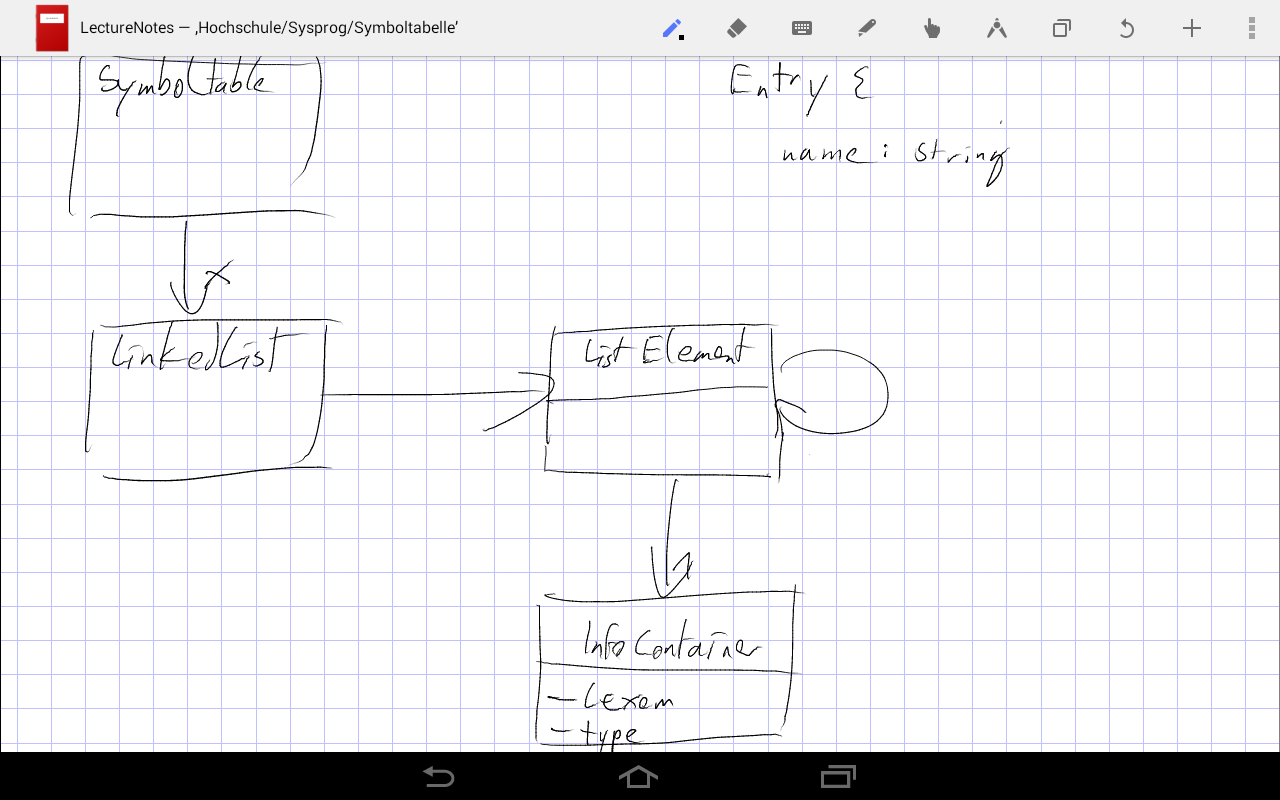 LectureNotes — ‚Hochschule/Sysprog/Symboltabelle‘
Symboltable
Entry {
name : string
x
LinkedList
List Element
1
Info Container
- Lexem
- type